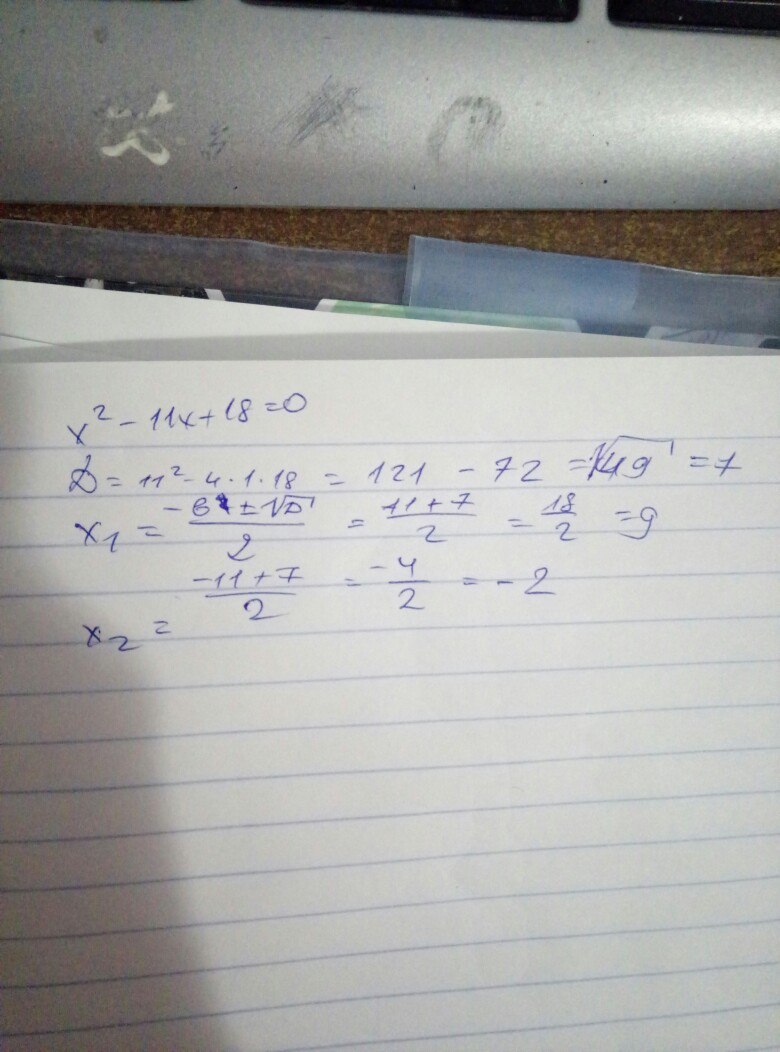 x² - 11x + 18 = 0
D = 11² - 4 · 1 · 18 = 121 - 72 = √49 = 7
x₁ = (-в ± √D)/2 = (11 + 7)/2 = 18/2 = 9
x₂ = (-11 + 7)/2 = -4/2 = -2